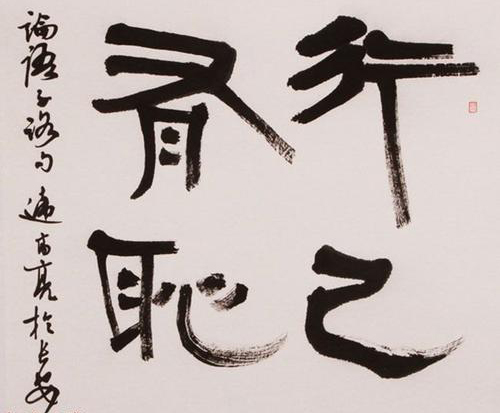 行己
有恥
論語子路句 遆高亮於長安